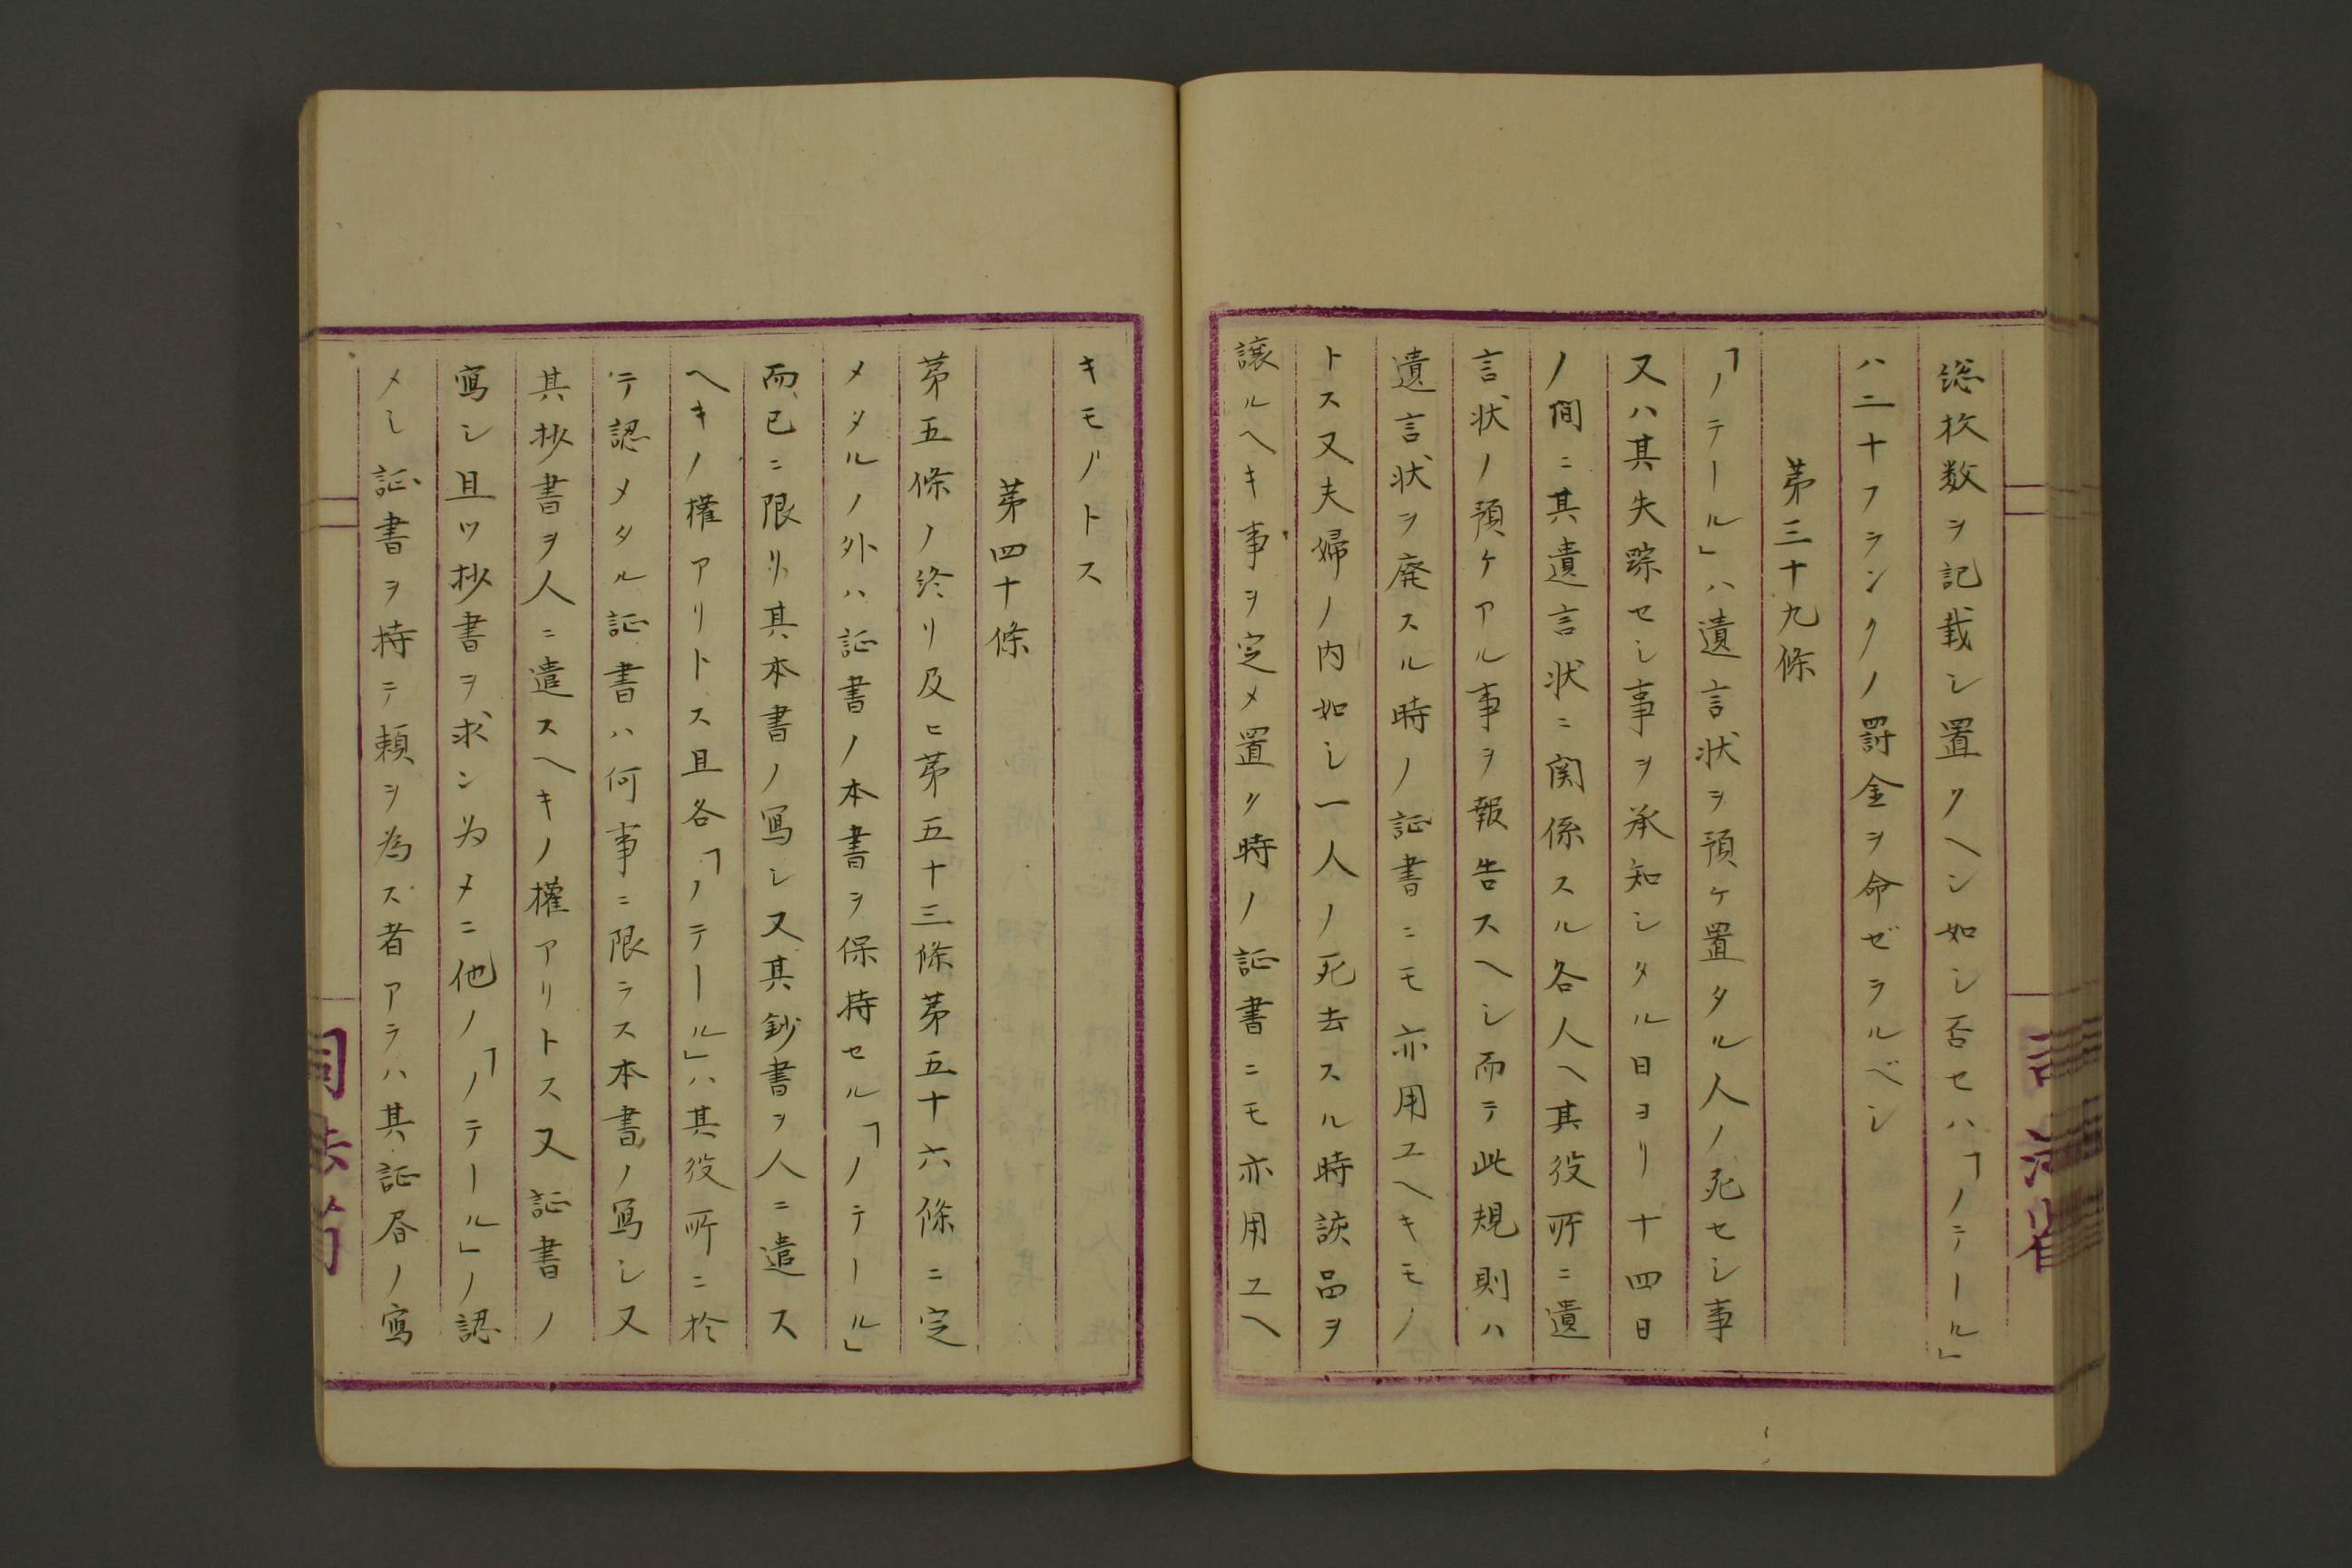 総枚数ヲ記載シ置クヘシ如シ否セハ「ノテール」
ハ二十フランクノ罰金ヲ命ゼラルベシ
第三十九條
「ノテール」ハ遺言状ヲ預ケ置タル人ノ死セシ事
又ハ其失踪セシ事ヲ承知シタル日ヨリ十四日
ノ間ニ其遺言状ニ関係スル各人ヘ其役所ニ遺
言状ノ預ケアル事ヲ報告スヘシ而テ此規則ハ
遺言状ヲ廃スル時ノ証書ニモ亦用ユヘキモノ
トス又夫婦ノ内如シ一人ノ死去スル時該品ヲ
譲ルヘキ事ヲ定メ置ク時ノ証書ニモ亦用ユヘ
キモノトス
第四十條
第五條ノ終リ及ヒ第五十三條第五十六條ニ定
メタルノ外ハ証書ノ本書ヲ保持セル「ノテール」
而已ニ限リ其本書ノ写シ又其鈔書ヲ人ニ遣ス
ヘキノ権アリトス且各「ノテール」ハ其役所ニ於
テ認メタル証書ハ何事ニ限ラス本書ノ写シ又
其抄書ヲ人ニ遣スヘキノ権アリトス又証書ノ
写シ且ツ抄書ヲ求ン為メニ他ノ「ノテール」ノ認
メシ証書ヲ持テ頼ヲ為ス者アラハ其証書ノ写
司法省